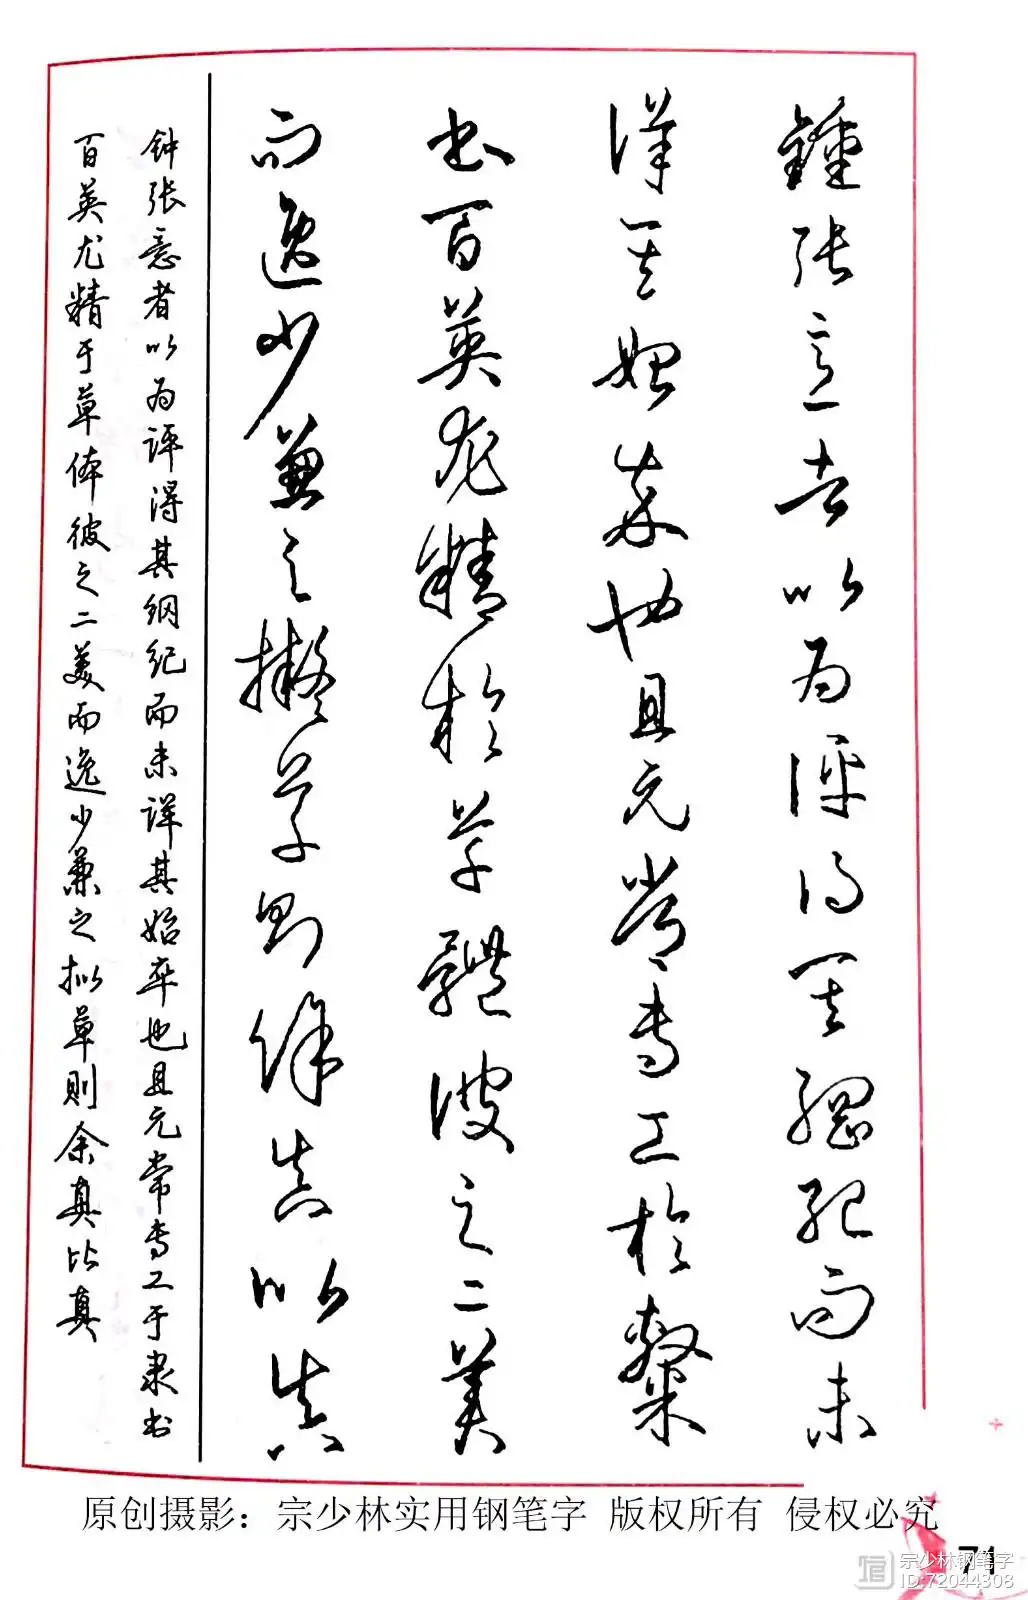 鍾張意者以為評得其綱紀而未
詳其始卒也且元常專工於隸
書百英尤精於草體彼之二美
而逸少兼之擬草則餘真比真
钟张意者以为评得其纲纪而未详其始卒也且元常专工于隶书
百英尤精于草体彼之二美而逸少兼之拟草则余真比真
原创摄影：宗少林实用钢笔字 版权所有 侵权必究
71
宗少林钢笔字
ID:72044308